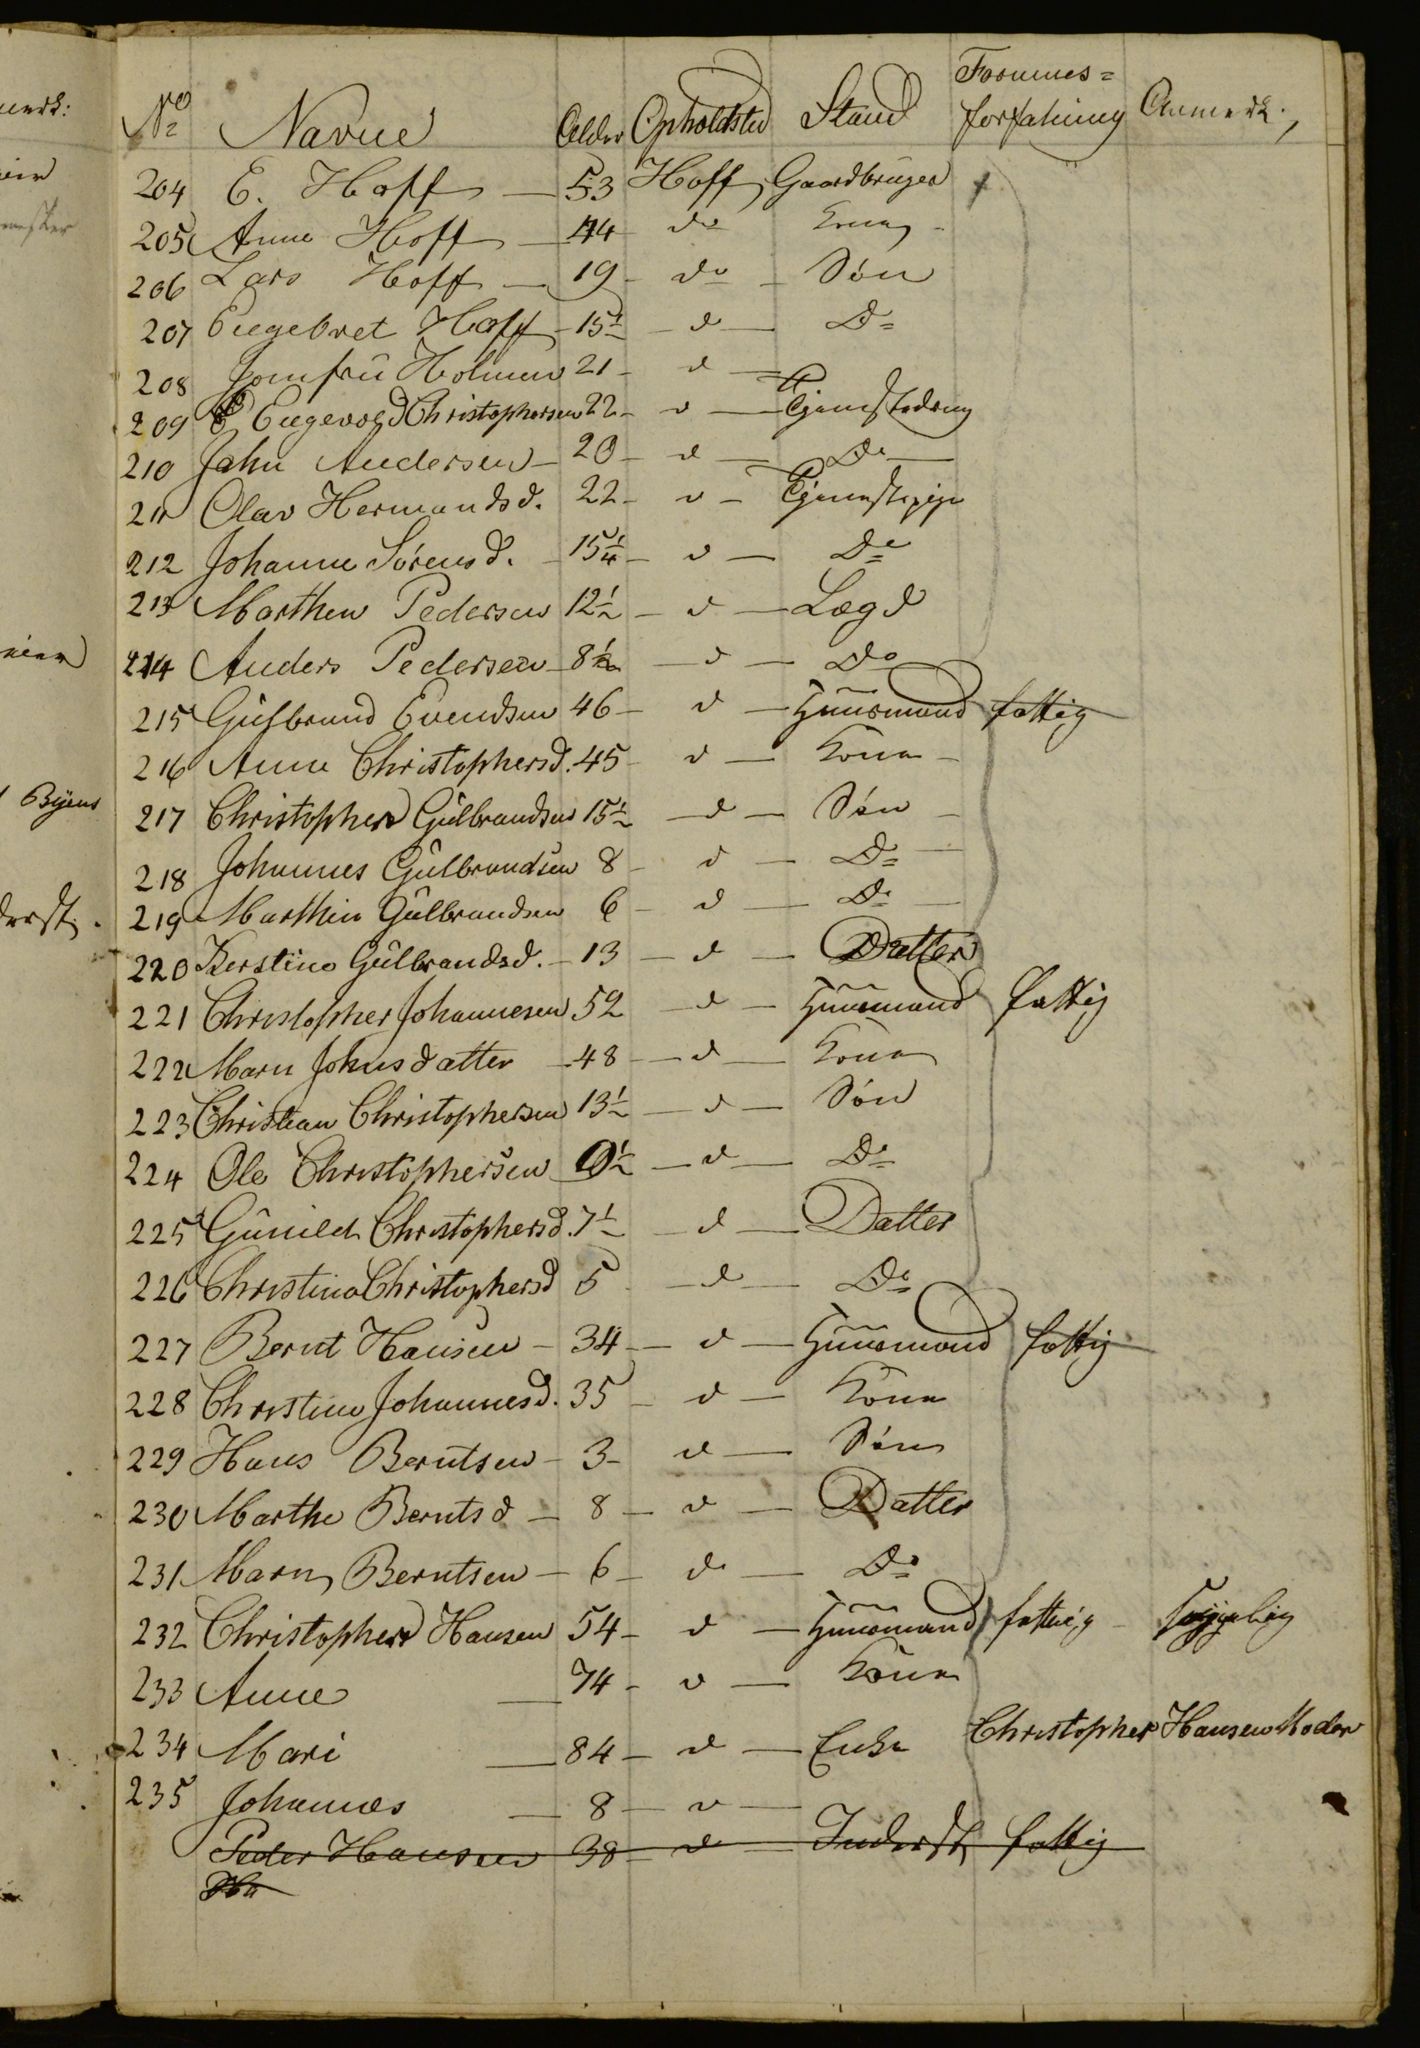 Formues=
No Navne Alder Opholdsted Stand forfatning Anmerk.
204 E. Hoff — 53 Hoff Gaardbruger
205 Anne Hoff — 44 do Kone
206 Lars Hoff — 19 - do - Søn
207 Engebret Hoff - 15½ - d — Do
208 Jomfru Holmen 21 - d —
209 Engevold Christophersen 22 - d — Tjenestedreng
210 John Andersen - 20 - d — Do
211 Olav Hermandsd. 22 - d - Tjenestepige
212 Johanne Sørensd. - 15¼ - d — Do
213 Marthen Pedersen 12½ - d — Lægd
214 Anders Pedersen - 8½ - d — Do
215 Gulbrand Evendsen 46 - d — Huusmand fattig
216 Anne Christophersd. 45 - d — Kone
217 Christopher Gulbrandsen 15½ - d — Søn
218 Johannes Gulbrandsen 8 - d — Do
219 Marthin Gulbrandsen 6 - d — Do
220 Kerstine Gulbrandsd. - 13 - d — Datter
221 Christopher Johannesen 52 - d — Huusmand fattig
222 Marn Johnsdatter - 48 - d — Kone
223 Christian Christophersen 13½ - d — Søn
224 Ole Christophersen 9½ - d — Do
225 Gunild Christophersd. 7½ - d — Datter
226 Christina Christophersd 5 - d — Do
227 Bernt Hansen - 34 - d — Huusmand fattig
228 Christine Johannesd. 35 - d — Kone
229 Hans Berntsen - 3 - d — Søn
230 Marthe Berntsd - 8 - d — Datter
231 Marn Berntsen - 6 - d — Do
232 Christopher Hansen 54 - d — Huusmand fattig - sygelig
233 Anne — 74 - d — Kone
234 Mari — 84 - d — Enke Christopher Hansen Moder
235 Johannes — 8 - d —
Peder Hansen 38 - d — Inderst fattig